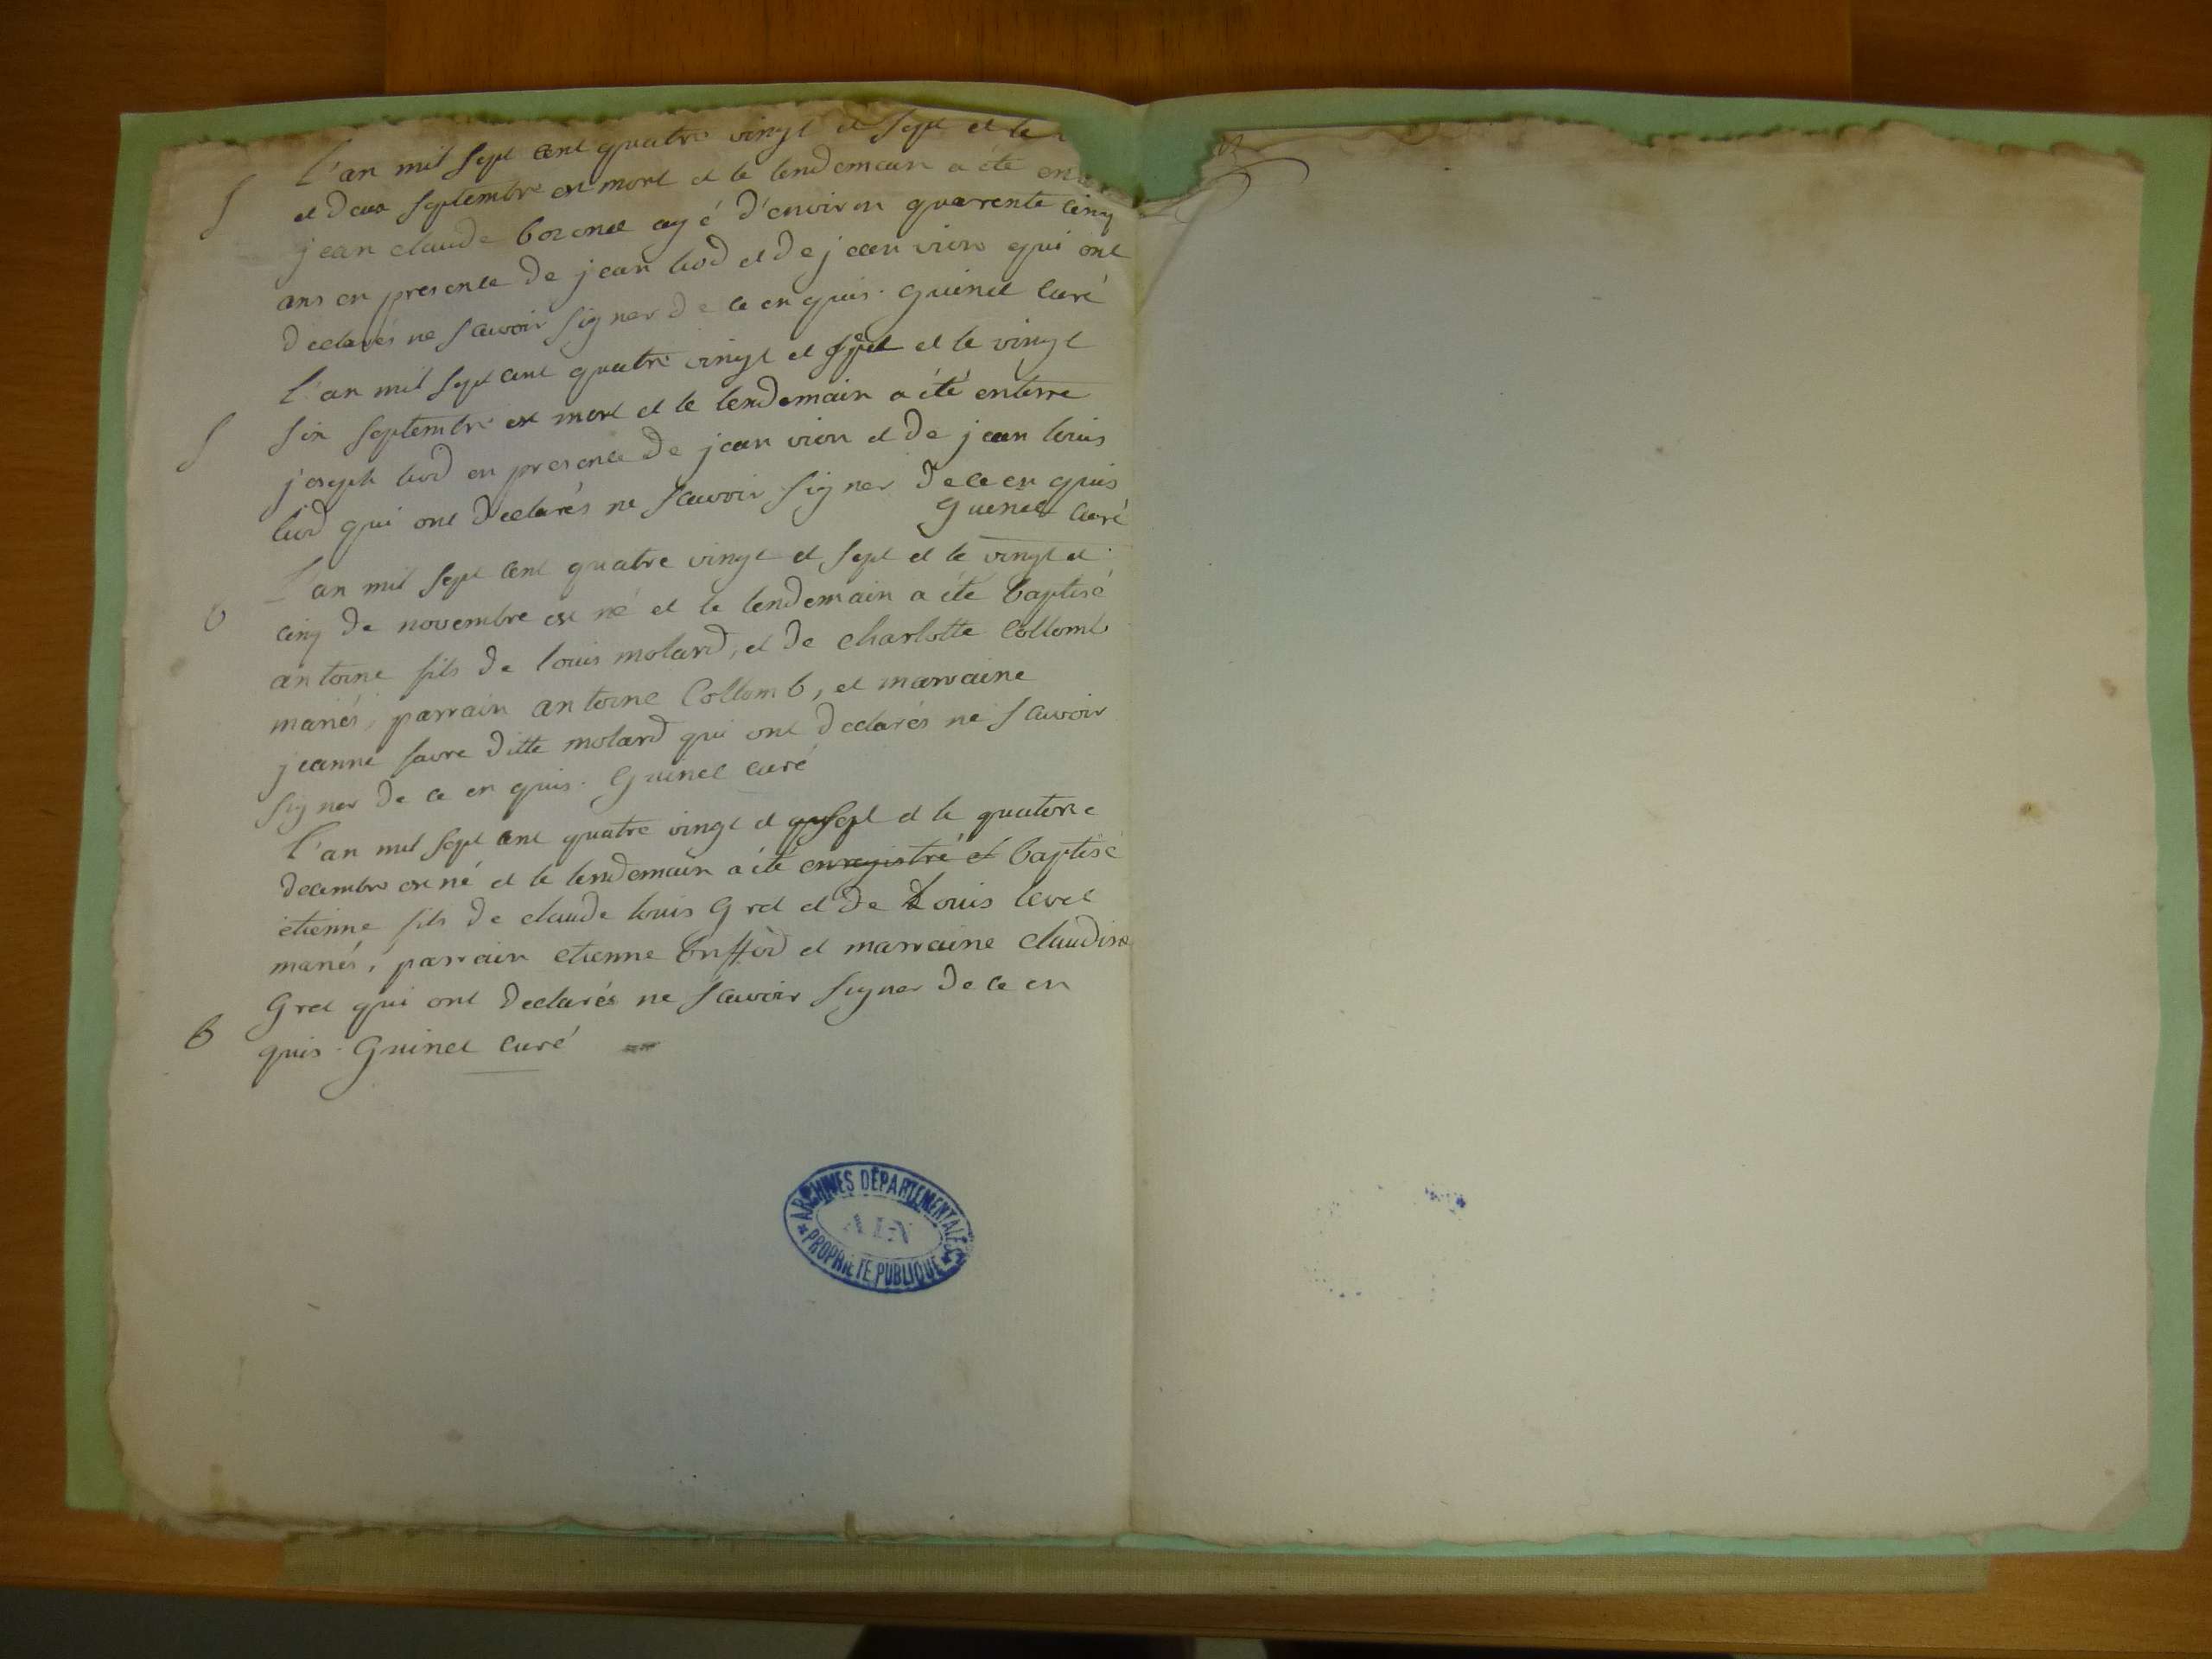 S
l'an mil sept cent quatre vingt et sept et le
et deux septembre est mort et le lendemain a été
jean claude bozonet agé d'environ quarente cinq
ans en presence de jean et de jean vion qui ont
declarés ne scavoir signer de ce enquis. Guinet curé
S
l'an mil sept cent quatre vingt et sept et le vingt
six septembre est mort et le lendemain a été enterre
joseph en presence de jean vion et de jean louis
qui ont declarés ne scavoir signer de ce en quis
Guinet curé
b
L'an mil sept cent quatre vingt et sept et le vingt et
cinq de novembre est né et le lendemain a été baptisé
antoine fils de louis molard, et de charlotte Collomb
mariés, parrain antoine Collomb, et marraine
jeanne favre ditte molard qui ont declarés ne scavoir
signer de ce en quis. Guinet curé
l'an mil sept cent quatre vingt et sept et le quatorze
decembre est né et le lendemain a été enregistré et baptisé
etienne fils de claude louis Gret et de Louis
mariés, parrain etienne et marraine claudine
Gret qui ont declarés ne scavoir signer de ce en
B
quis. Guinet curé
ARCHIVES DÉPARTEMENTALES
AIN
PROPRIÉTÉ PUBLIQUE